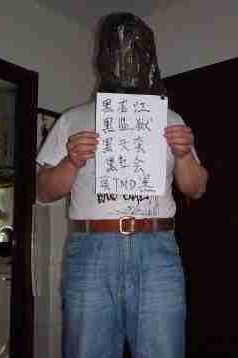 黑龙江
黑监狱
黑
黑社会
真TMD黑